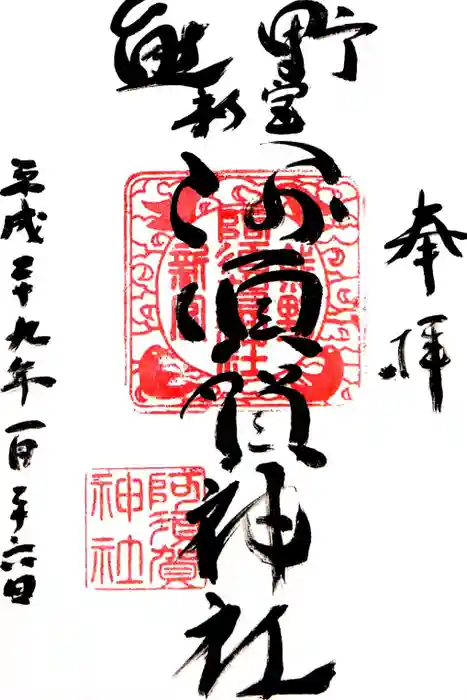 奉拝
熊野
新宮
阿須賀神社
平成二十九年一月二十六日
熊野
阿須賀社
新宮
阿須賀
神社